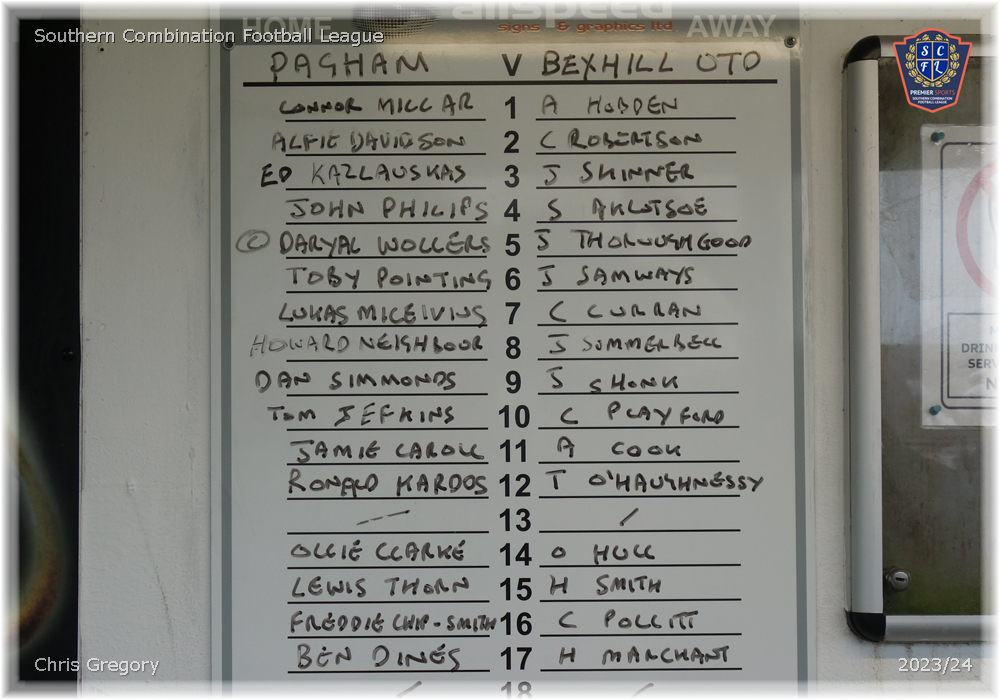 Southern Combination Football League
HOME allspeed AWAY
signs & graphics ltd
SCFL
PREMIER SPORTS
SOUTHERN COMBINATION
FOOTBALL LEAGUE
PAGHAM V BEXHILL UTD
CONNOR MILLAR 1 A HOBDEN
ALFIE DAVIDSON 2 C ROBERTSON
ED KAZLAUSKAS 3 J SKINNER
JOHN PHILIPS 4 S AKLOTSOE
C DARYAL WOLLERS 5 J THOROUGHGOOD
TOBY POINTING 6 J SAMWAYS
LUKAS MICEIVIUS 7 C CURRAN
HOWARD NEIGHBOUR 8 J SUMMERBELL
DAN SIMMONDS 9 J SHONK
TOM JEFKINS 10 C PLAYFORD
JAMIE CAROLL 11 A COOK
RONALD KARDOS 12 T O'HAUGHNESSY
— 13 /
OLLIE CLARKE 14 O HULL
LEWIS THORN 15 H SMITH
FREDDIE CHIP-SMITH 16 C POLLITT
BEN DINES 17 H MARCHANT
18
DRIN
SERV
N
Chris Gregory
2023/24